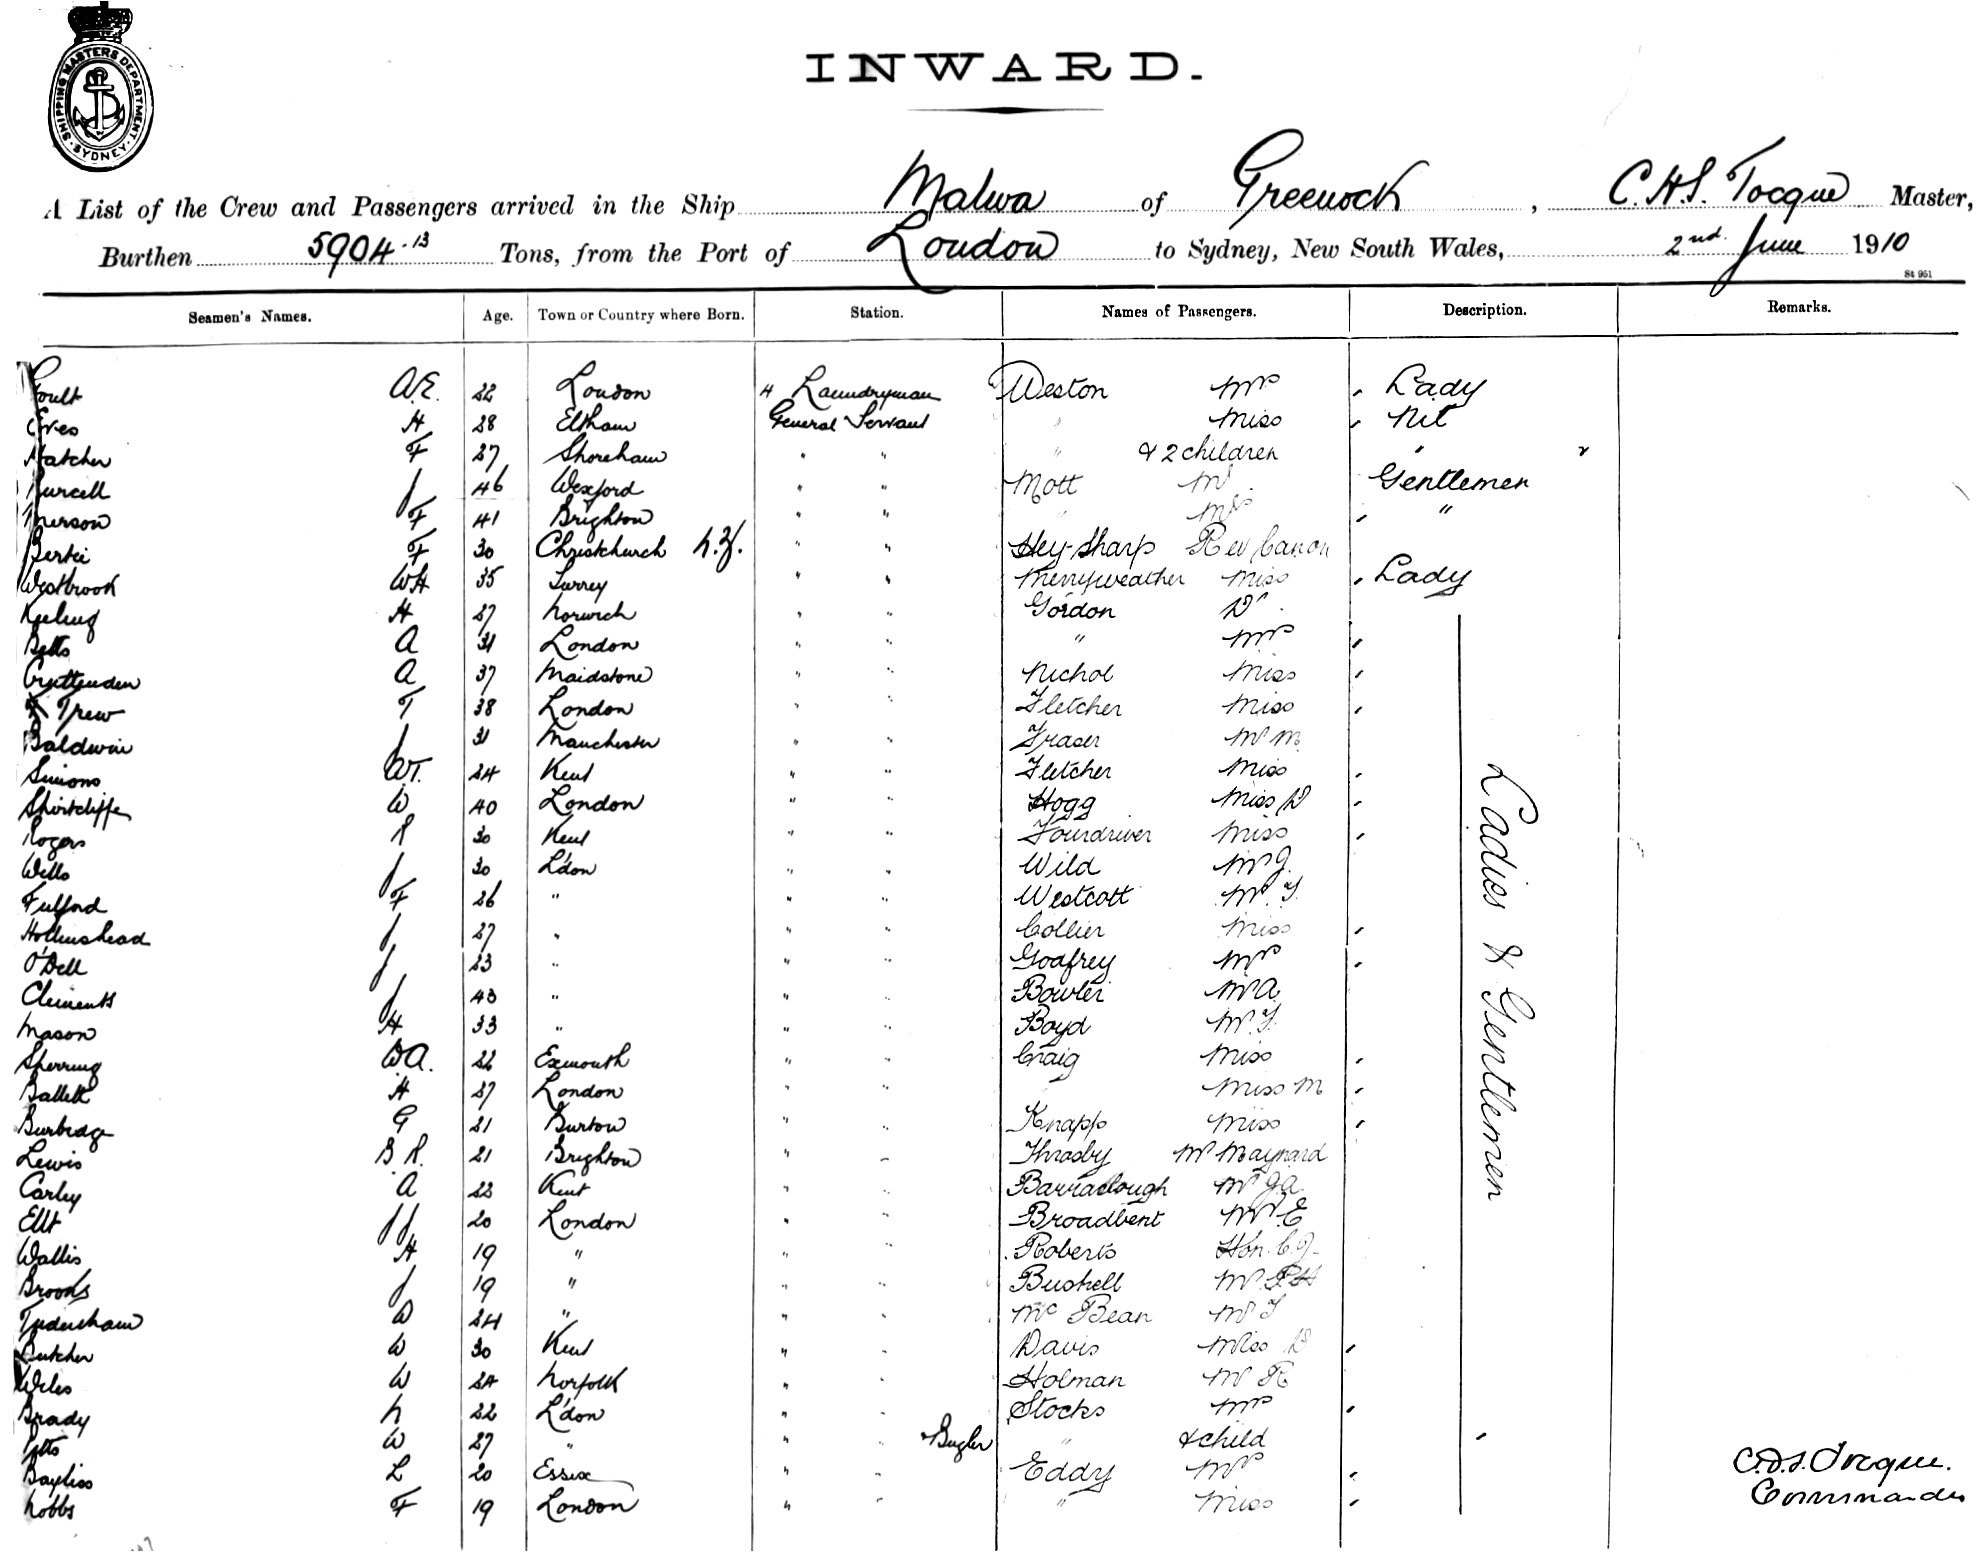 SHIPPING MASTERS DEPARTMENT · SYDNEY ·
INWARD.
A List of the Crew and Passengers arrived in the Ship Malwa of Greenock, C.H.S. Tocque Master,
Burthen 5904.13 Tons, from the Port of London to Sydney, New South Wales, 2nd June 1910
St 951
Seamen's Names. Age. Town or Country where Born. Station. Names of Passengers. Description. Remarks.
Coult A.E. 22 London 4 Laundryman Weston Mrs , Lady
Eves H 28 Eltham General Servant " Miss , Nil
Hatcher F 27 Shoreham " " " & 2 children "
Purcell J 46 Wexford " " Mott Mr Gentlemen
F 41 Brighton " " " Mrs , "
Bertie F 30 Christchurch N.Z. " " Hey-Sharp Rev Canon
Westbrook WH 35 Surrey " " Merryweather Miss , Lady
Keeling H 27 Norwich " " Gordon Dr
Betts A 31 London " " " Mrs ,
Cruttenden A 37 Maidstone " " Nichol Miss ,
Trew T 38 London " " Fletcher Miss ,
Baldwin J 31 Manchester " " Fraser Mr M
Simons W.T. 24 Kent " " Fletcher Miss ,
Shirtcliffe W 40 London " " Hogg Miss D ,
Rogers R 30 Kent " " Fourdriver Miss ,
Wells J 30 L'don " " Wild Mr J.
Fulford F 26 " " " Westcott Mr. F.
Hollinshead J 27 " " " Collier Miss ,
O'Dell J 23 " " " Godfrey Mrs ,
Clements J 43 " " " Bowler Mr A
Mason H 33 " " " Boyd Mr. F.
Sherring W.A. 22 Exmouth " " Craig Miss ,
Ballett H 27 London " " Miss M ,
Burbidge G 21 Burton " " Knapp Miss ,
Lewis B R. 21 Brighton " " Throsby Mr Maynard
Carley A 23 Kent " " Barraclough Mr J.A.
Ellt JJ 20 London " " Broadbent Mr. E
Wallis H 19 " " " Roberts Hon. C.J.
Brooks J 19 " " " Bushell Mr. P.H
D 24 " " " Mc Bean Mr F
Butcher W 30 Kent " " Davis Miss D ,
Wiles W 24 Norfolk " " Holman Mr R
Brady N 22 L'don " " Stocks Mrs ,
Potts W 27 " " " Bugler " & child ,
Bayliss L 20 Essex " " Eddy Mrs ,
Nobbs F 19 London " " " Miss ,
Ladies & Gentlemen
C.H.S. Tocque.
Commander